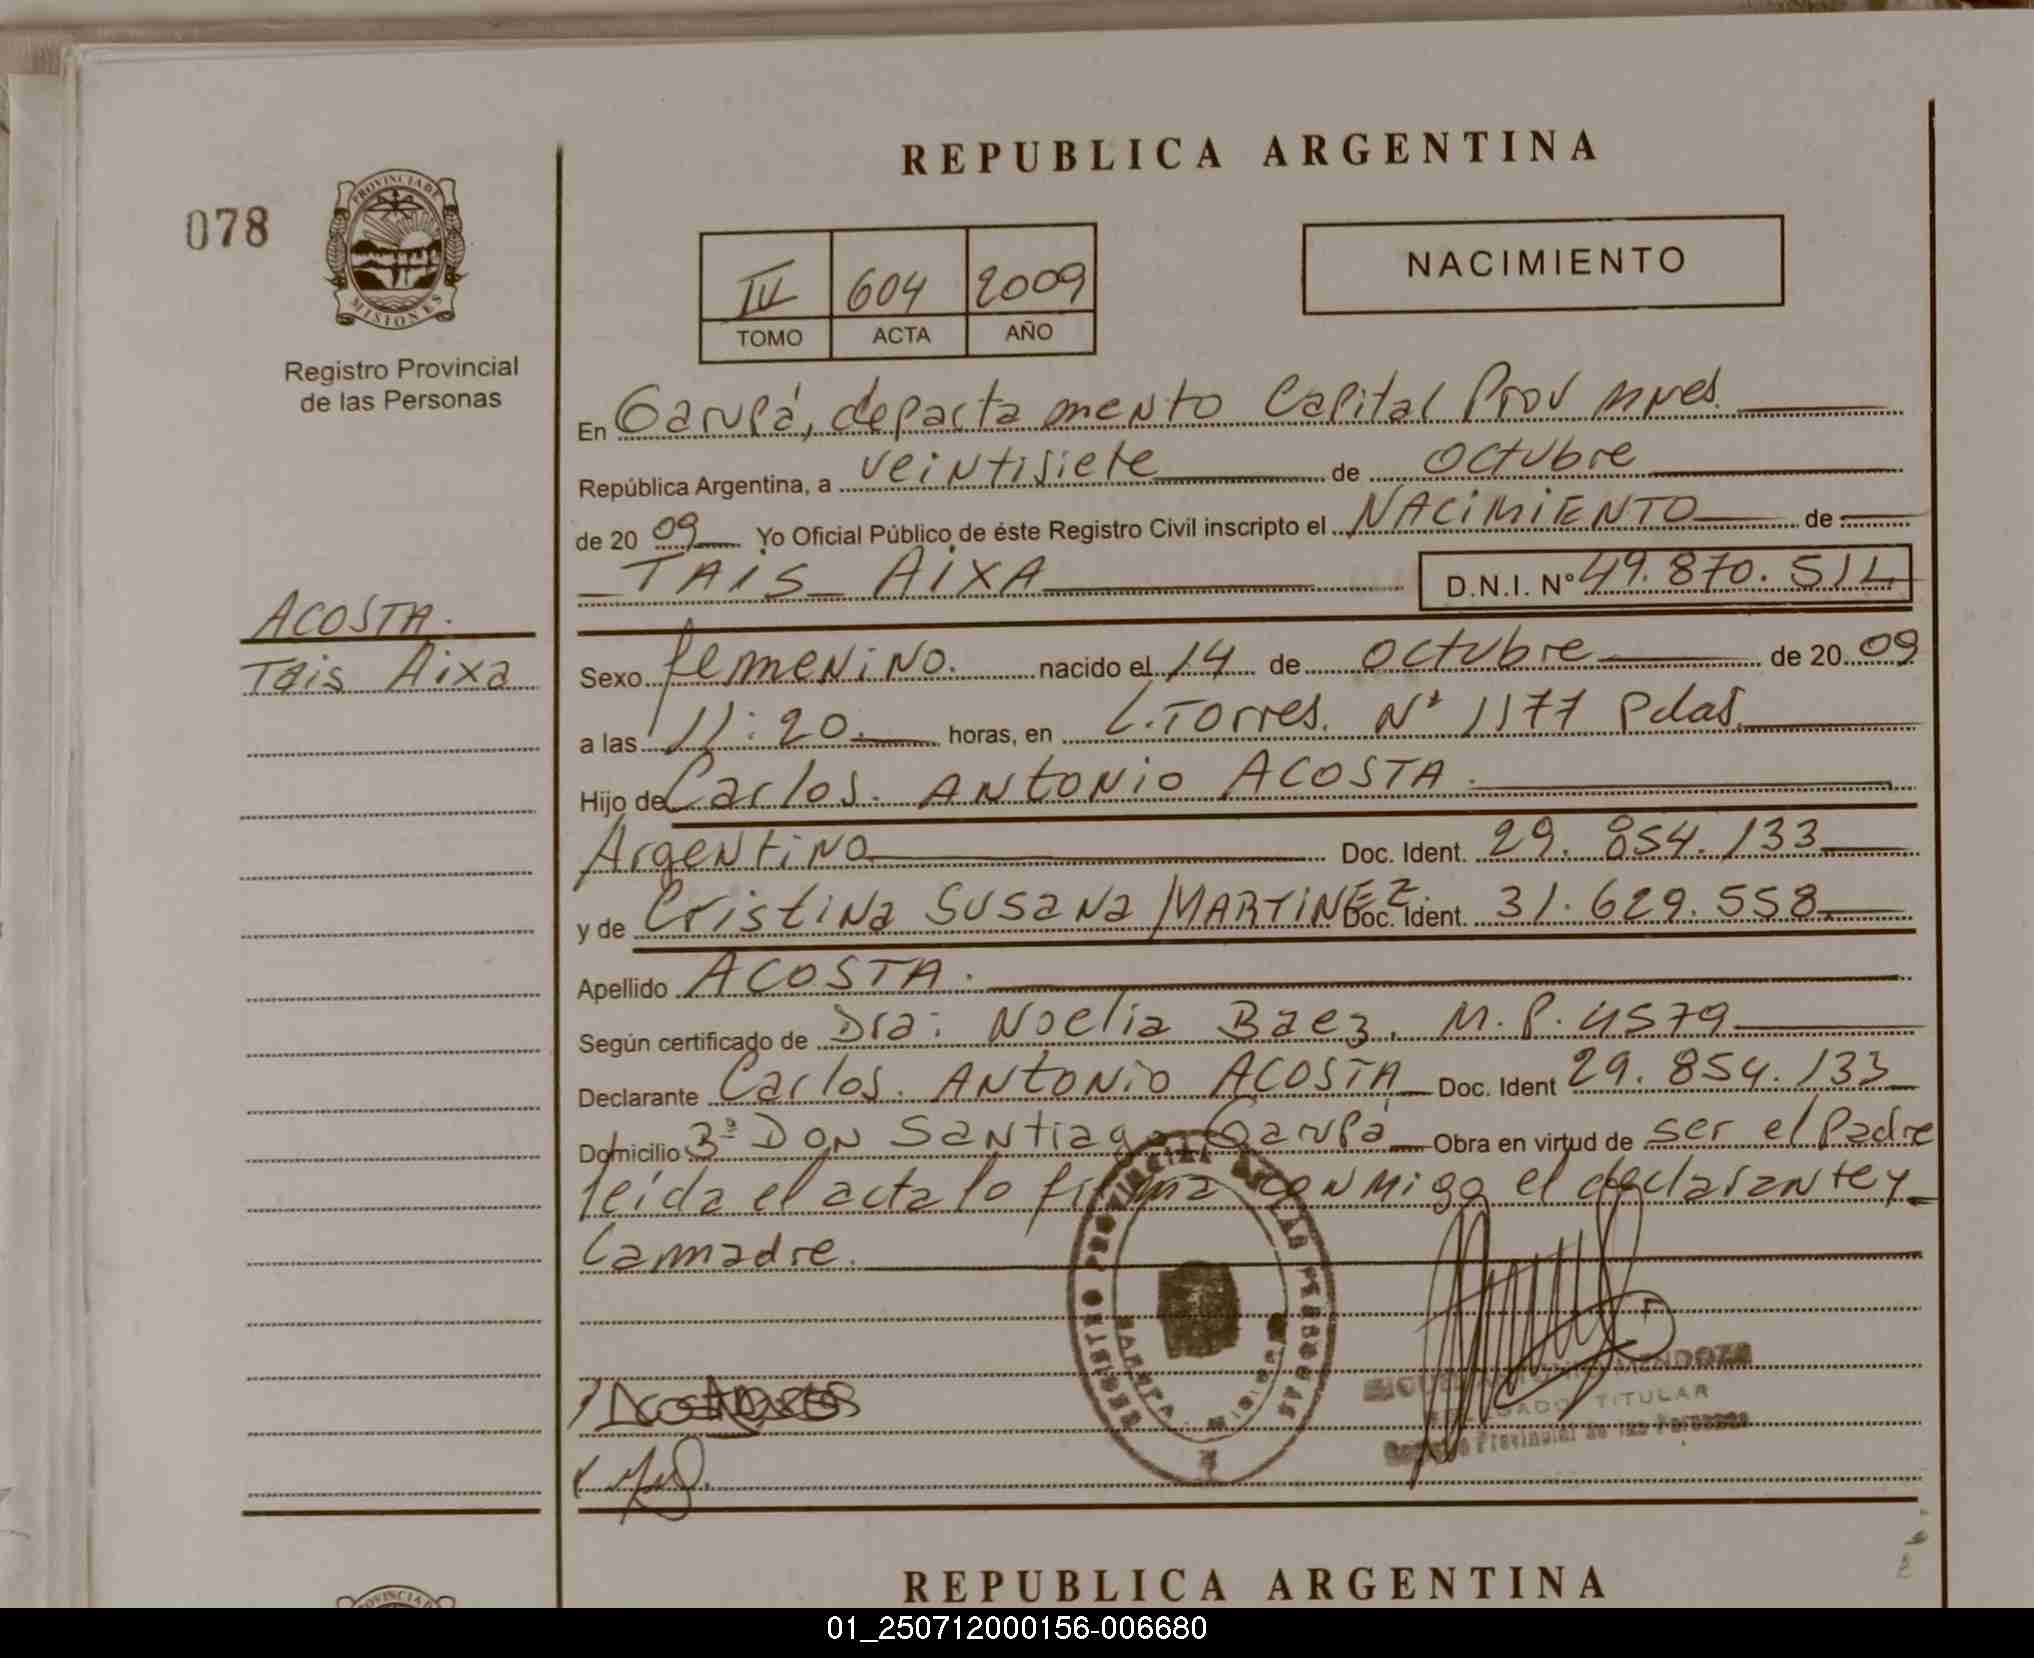 REPUBLICA ARGENTINA
078
PROVINCIA DE MISIONES
Registro Provincial
de las Personas
IV 604 2009
TOMO ACTA AÑO
NACIMIENTO
En Garupá, departamento Capital Prov Mnes.
República Argentina, a veintisiete de octubre
de 2009 Yo Oficial Público de éste Registro Civil inscripto el NACIMIENTO de
TAIS AIXA D.N.I. Nº 49.870.511
ACOSTA.
Tais Aixa
Sexo femenino. nacido el 14 de octubre de 2009
a las 11:20. horas, en L. Torres. Nº 1177 Pdas.
Hijo de Carlos. Antonio ACOSTA.
Argentino Doc. Ident. 29.854.133
y de Cristina Susana MARTINEZ. Doc. Ident. 31.629.558.
Apellido ACOSTA.
Según certificado de Dra: Noelia Baez. M.P. 4579
Declarante Carlos. Antonio ACOSTA Doc. Ident 29.854.133
Domicilio Bº Don Santiago Garupá Obra en virtud de ser el padre
leída el acta lo firma conmigo el declarante y
la madre.
REGISTRO PROVINCIAL DE LAS PERSONAS
GARUPA - MISIONES
MENDOZA
TITULAR
Registro Provincial de las Personas
REPUBLICA ARGENTINA
PROVINCIA DE
01_250712000156-006680